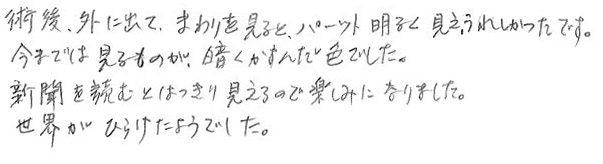 術後、外に出て、まわりを見ると、パーット明るく見えうれしかったです。
今までは見るものが、暗くかすんだ色でした。
新聞を読むとはっきり見えるので楽しみになりました。
世界がひらけたようでした。